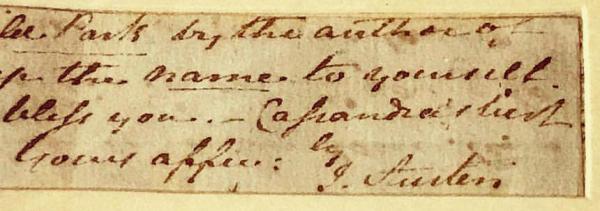 Park by the author of
the name to yourself.
bless you. – Cassandra's best
Yours affec:ly
J. Austen